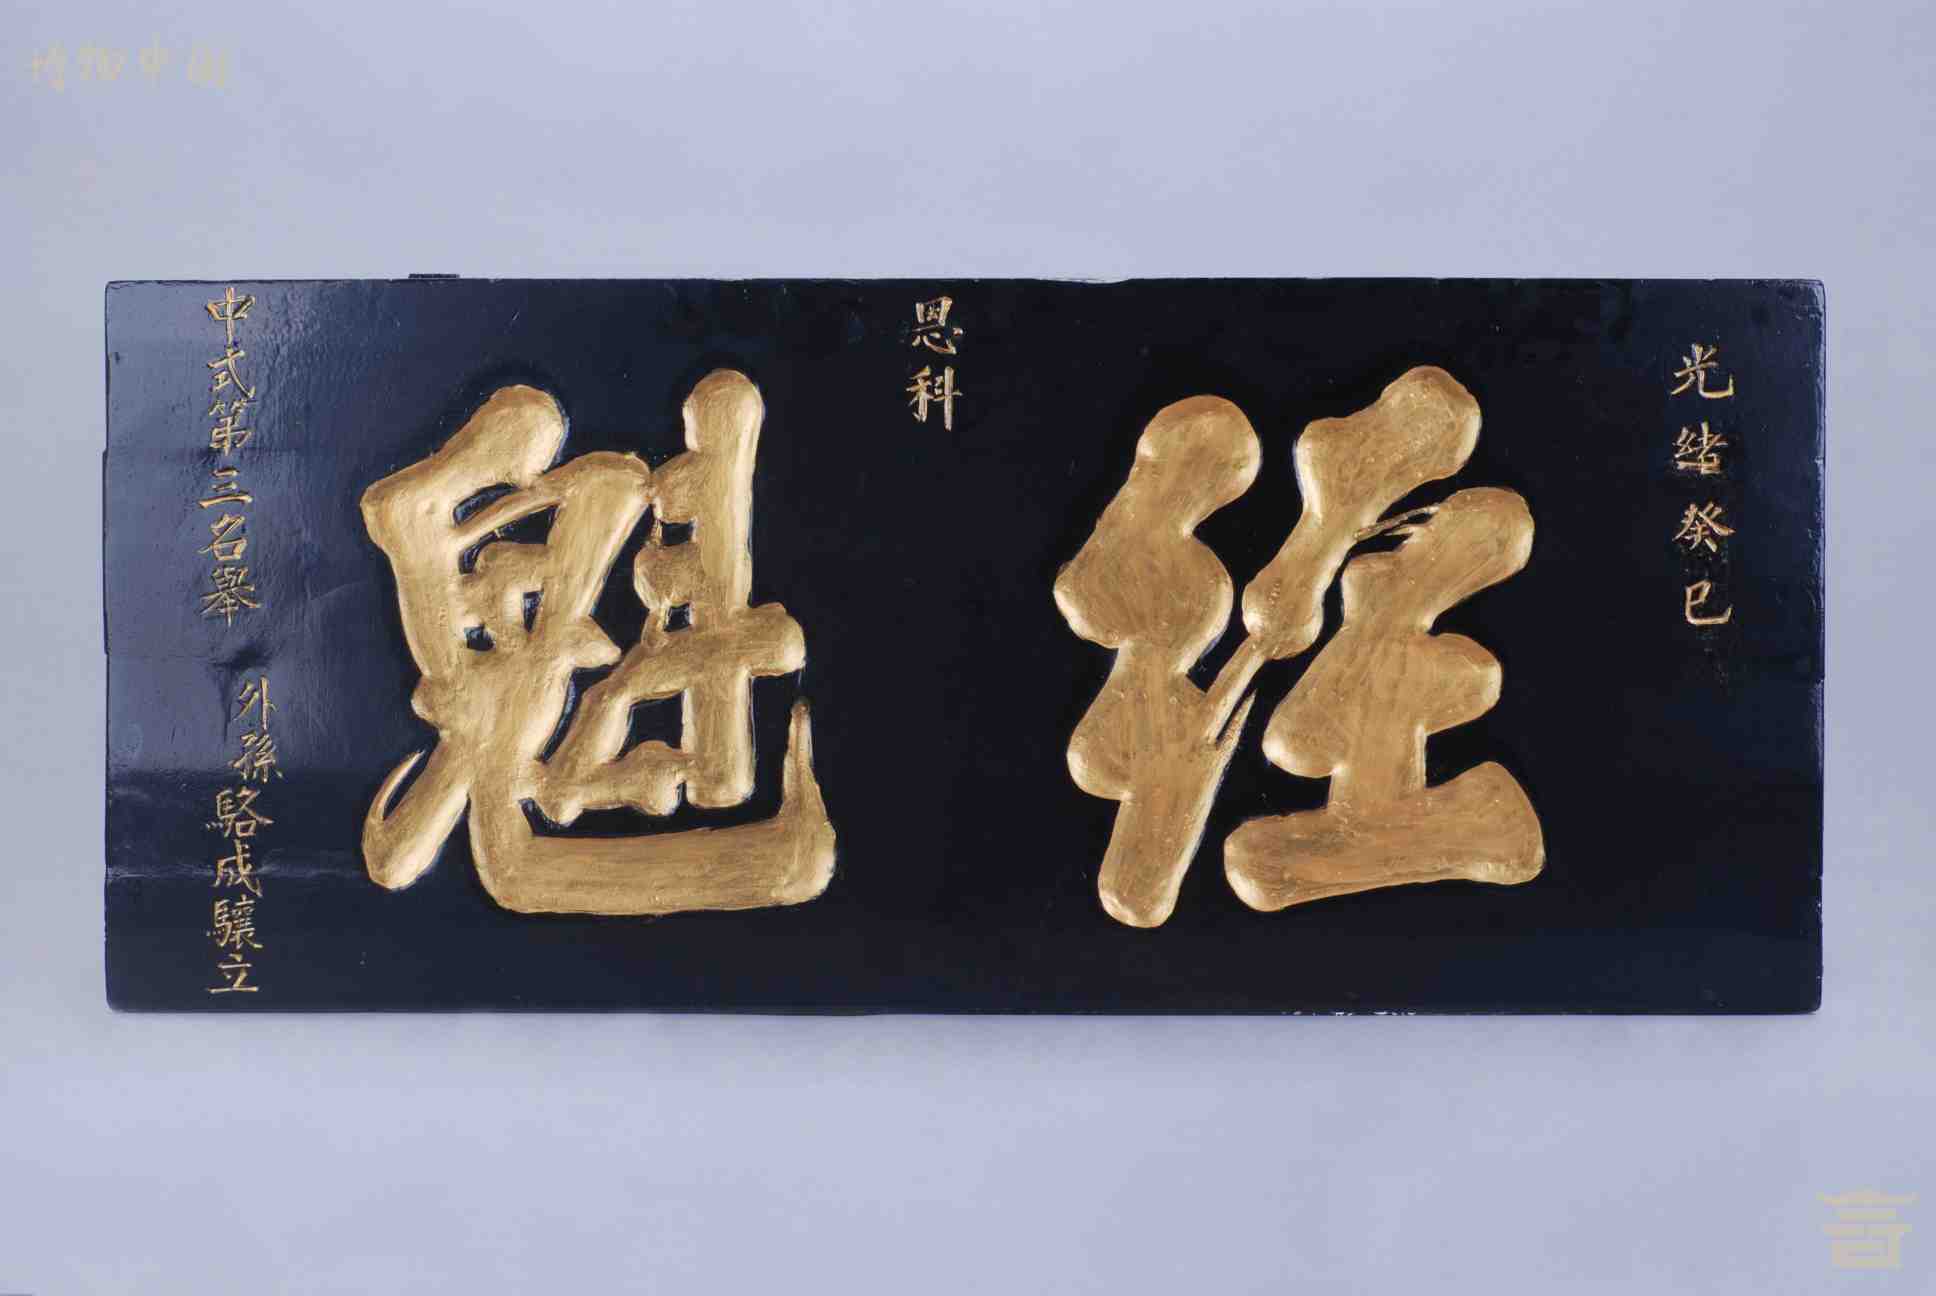 博物中国
光緒癸巳
恩科
經魁
中式第三名舉
外孫駱成驤立